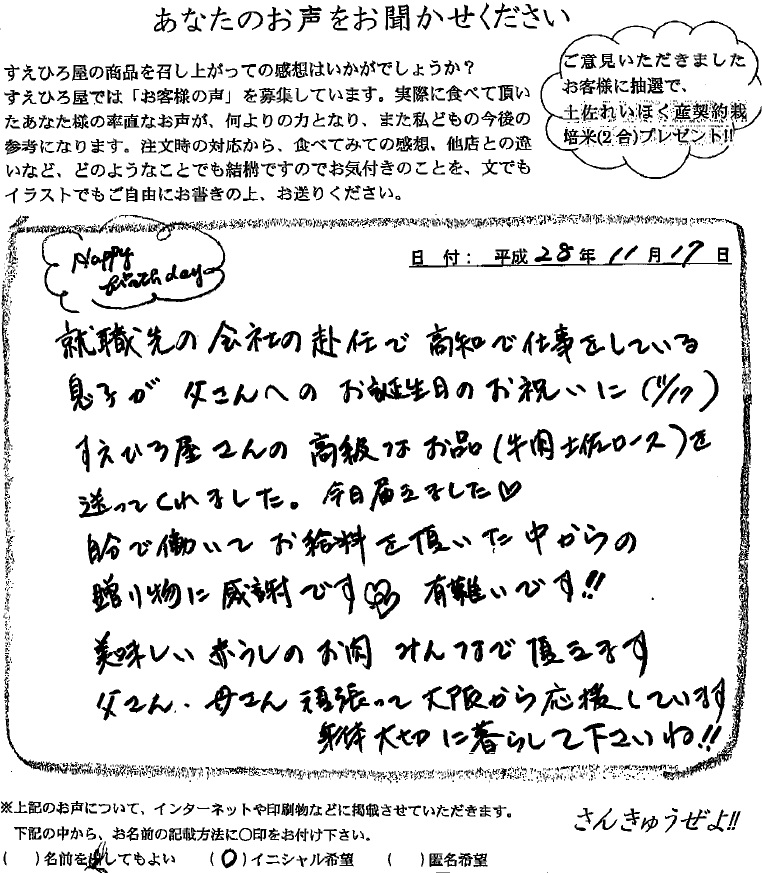 あなたのお声をお聞かせください
すえひろ屋の商品を召し上がっての感想はいかがでしょうか？
すえひろ屋では「お客様の声」を募集しています。実際に食べて頂い
たあなた様の率直なお声が、何よりの力となり、また私どもの今後の
参考になります。注文時の対応から、食べてみての感想、他店との違
いなど、どのようなことでも結構ですのでお気付きのことを、文でも
イラストでもご自由にお書きの上、お送りください。
ご意見いただきました
お客様に抽選で、
土佐れいほく産契約栽
培米(2合)プレゼント!!
Happy
birthday
日 付： 平成 28 年 11 月 17 日
就職先の会社の赴任で高知で仕事をしている
息子が 父さんへの お誕生日のお祝いに (11/17)
すえひろ屋さんの 高級な お品 (牛肉土佐ロース) を
送ってくれました。今日届きました♡
自分で働いて お給料を頂いた中からの
贈り物に感謝です♡ 有難いです!!
美味しい 赤うしのお肉 みんなで頂きます
父さん、母さん 頑張って 大阪から応援しています
身体大切に暮らして下さいね!!
※上記のお声について、インターネットや印刷物などに掲載させていただきます。
下記の中から、お名前の記載方法に〇印をお付け下さい。
(　)名前を出してもよい　(〇)イニシャル希望　(　)匿名希望
さんきゅうぜよ!!